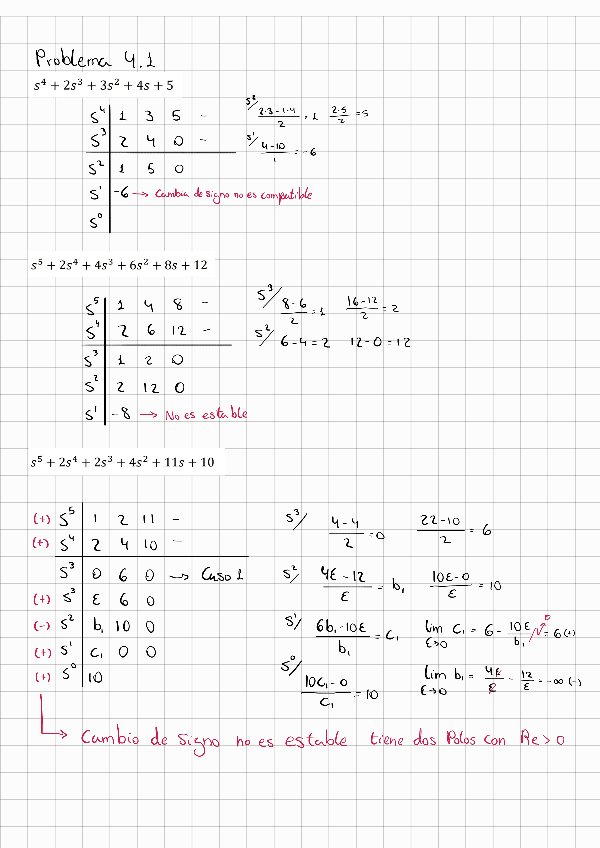 Problema 4.1
s⁴ + 2s³ + 3s² + 4s + 5
S⁴ | 1 3 5 -
S³ | 2 4 0 -
S² | 1 5 0
S¹ | -6 → Cambia de signo no es compatible
S⁰ |
S²/ (2·3-1·4)/2 = 1 (2·5)/2 = 5
S¹/ (4-10)/1 = -6
s⁵ + 2s⁴ + 4s³ + 6s² + 8s + 12
S⁵ | 1 4 8 -
S⁴ | 2 6 12 -
S³ | 1 2 0
S² | 2 12 0
S¹ | -8 → No es estable
S³/ (8-6)/2 = 1 (16-12)/2 = 2
S²/ 6-4=2 12-0=12
s⁵ + 2s⁴ + 2s³ + 4s² + 11s + 10
(+) S⁵ | 1 2 11 -
(+) S⁴ | 2 4 10 -
S³ | 0 6 0 → Caso 1
(+) S³ | ε 6 0
(-) S² | b₁ 10 0
(+) S¹ | C₁ 0 0
(+) S⁰ | 10
S³/ (4-4)/2 = 0 (22-10)/2 = 6
S²/ (4ε-12)/ε = b₁ (10ε-0)/ε = 10
S¹/ (6b₁-10ε)/b₁ = C₁ lim ε→0 C₁ = 6 - 10ε/b₁ ↗0 = 6 (+)
S⁰/ (10C₁-0)/C₁ = 10 lim ε→0 b₁ = 4ε/ε - 12/ε = -∞ (-)
→ Cambio de signo no es estable tiene dos Polos con Re>0